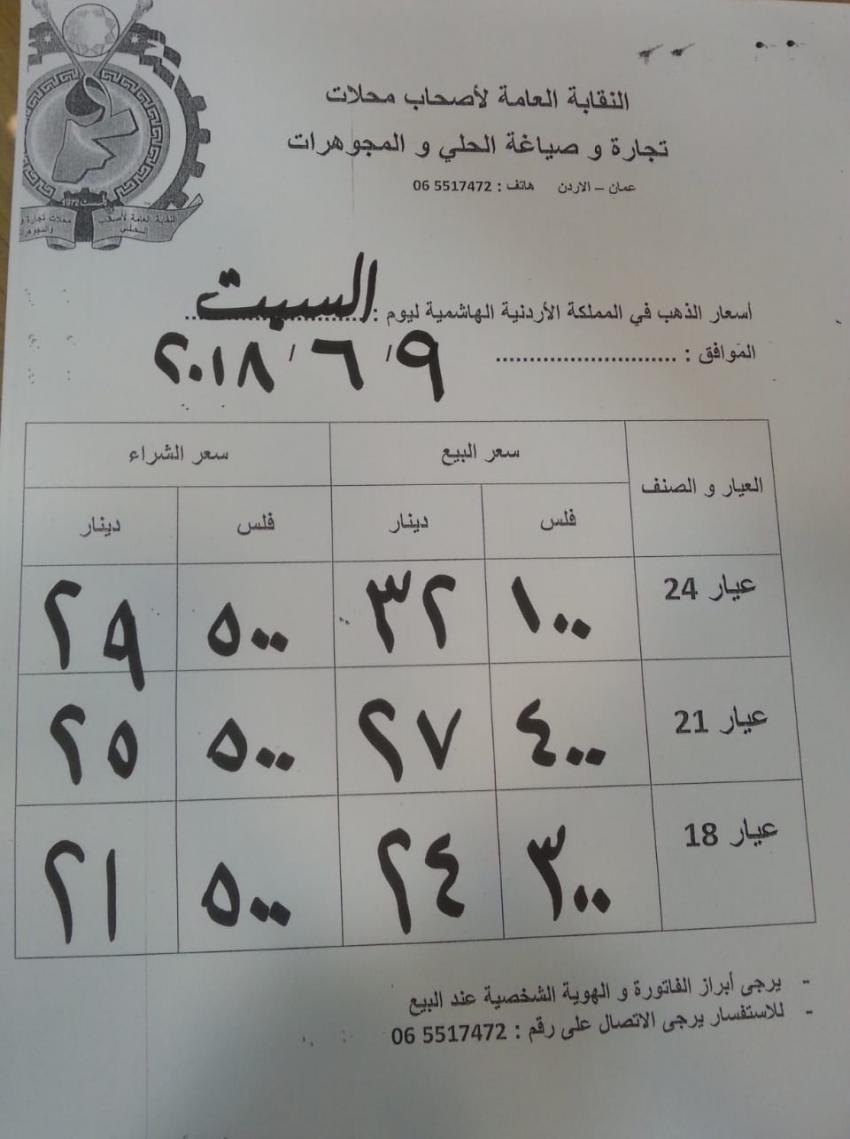 النقابة العامة لأصحاب محلات
تجارة و صياغة الحلي و المجوهرات
عمان – الاردن هاتف : 5517472 06
تأسست 1972
النقابة العامة لأصحاب محلات تجارة و
الحلي والمجوهر
أسعار الذهب في المملكة الأردنية الهاشمية ليوم : السبت
الموافق : .......................... ٩/ ٦/ ٢٠١٨
العيار و الصنف سعر البيع سعر الشراء
فلس دينار فلس دينار
عيار 24 ١٠٠ ٣٢ ٥٠٠ ٢٩
عيار 21 ٤٠٠ ٢٧ ٥٠٠ ٢٥
عيار 18 ٣٠٠ ٢٤ ٥٠٠ ٢١
- يرجى أبراز الفاتورة و الهوية الشخصية عند البيع
- للاستفسار يرجى الاتصال على رقم : 5517472 06